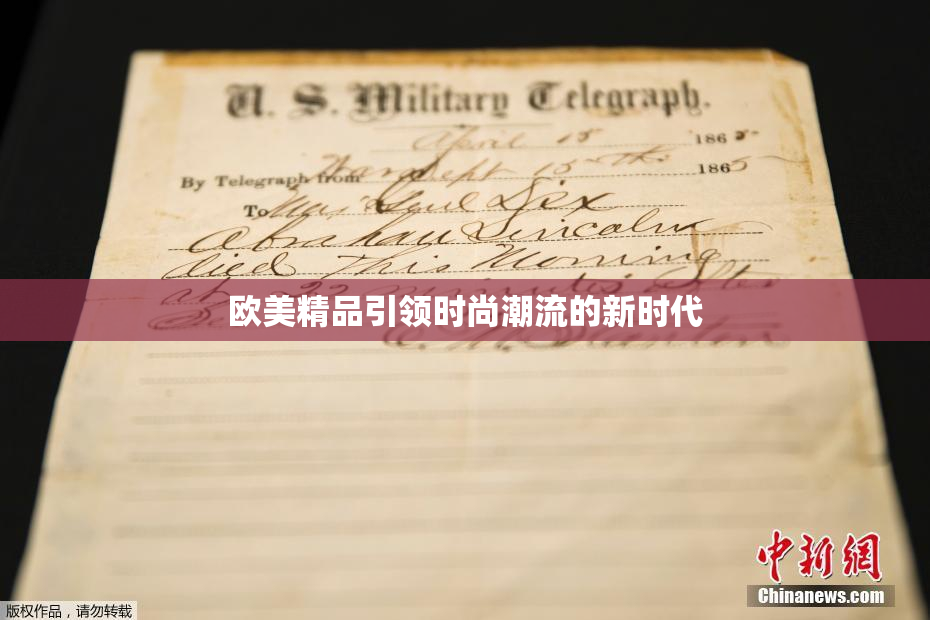 U. S. Military Telegraph.
April 15 1865
By Telegraph from War Dept 15th 1865
To Maj Genl Dix
Abraham Lincoln
died This Morning
at 22 minutes after
欧美精品引领时尚潮流的新时代
E. M. Stanton
中新网
Chinanews.com
版权作品，请勿转载